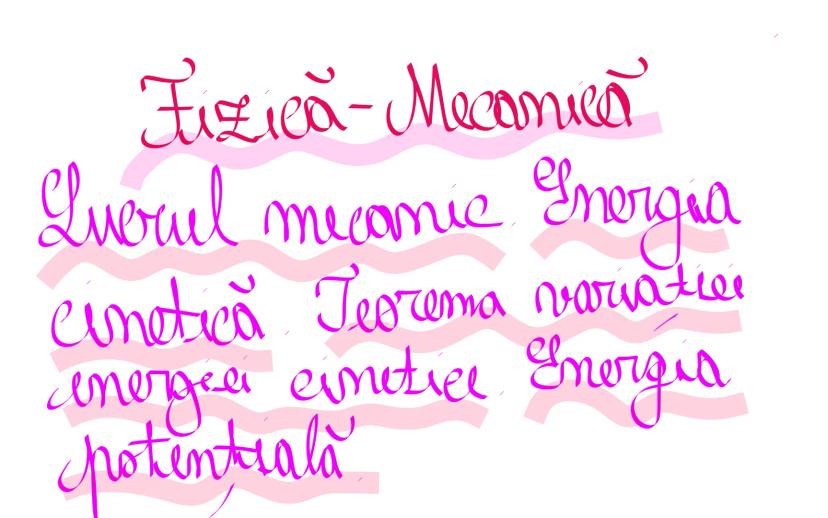 Fizică - Mecanică
Lucrul mecanic. Energia
cinetică. Teorema variației
energiei cinetice. Energia
potențială.